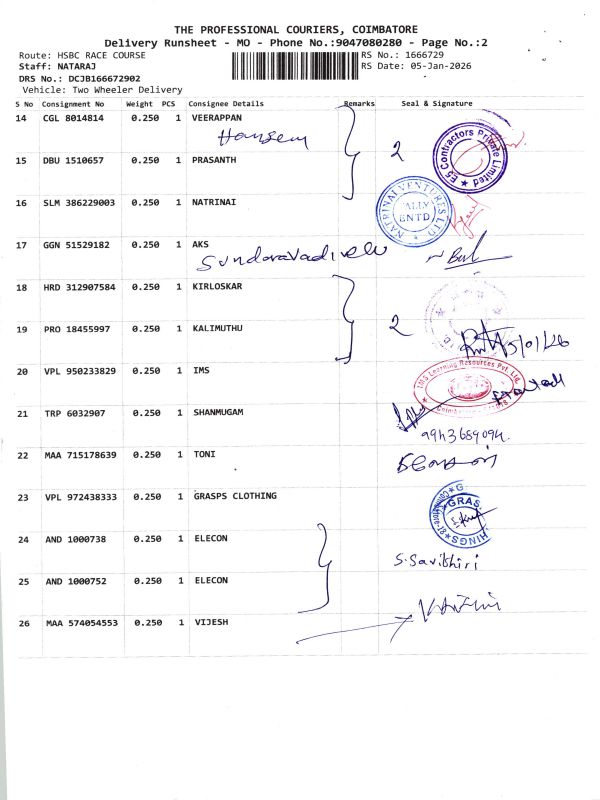 THE PROFESSIONAL COURIERS, COIMBATORE
Delivery Runsheet - MO - Phone No.:9047080280 - Page No.:2
Route: HSBC RACE COURSE RS No.: 1666729
Staff: NATARAJ RS Date: 05-Jan-2026
DRS No.: DCJB166672902
Vehicle: Two Wheeler Delivery
S No Consignment No Weight PCS Consignee Details Remarks Seal & Signature
14 CGL 8014814 0.250 1 VEERAPPAN
2
E5 Contractors Private Limited
15 DBU 1510657 0.250 1 PRASANTH
16 SLM 386229003 0.250 1 NATRINAI
NATRINAI VENTURES
17 GGN 51529182 0.250 1 AKS
Sundaravadivelu
18 HRD 312907584 0.250 1 KIRLOSKAR
19 PRO 18455997 0.250 1 KALIMUTHU
2
5/01/26
20 VPL 950233829 0.250 1 IMS
IMS Learning Resources Pvt. Ltd.
21 TRP 6032907 0.250 1 SHANMUGAM
22 MAA 715178639 0.250 1 TONI
23 VPL 972438333 0.250 1 GRASPS CLOTHING
GRAS
24 AND 1000738 0.250 1 ELECON
S. Savithiri
25 AND 1000752 0.250 1 ELECON
26 MAA 574054553 0.250 1 VIJESH